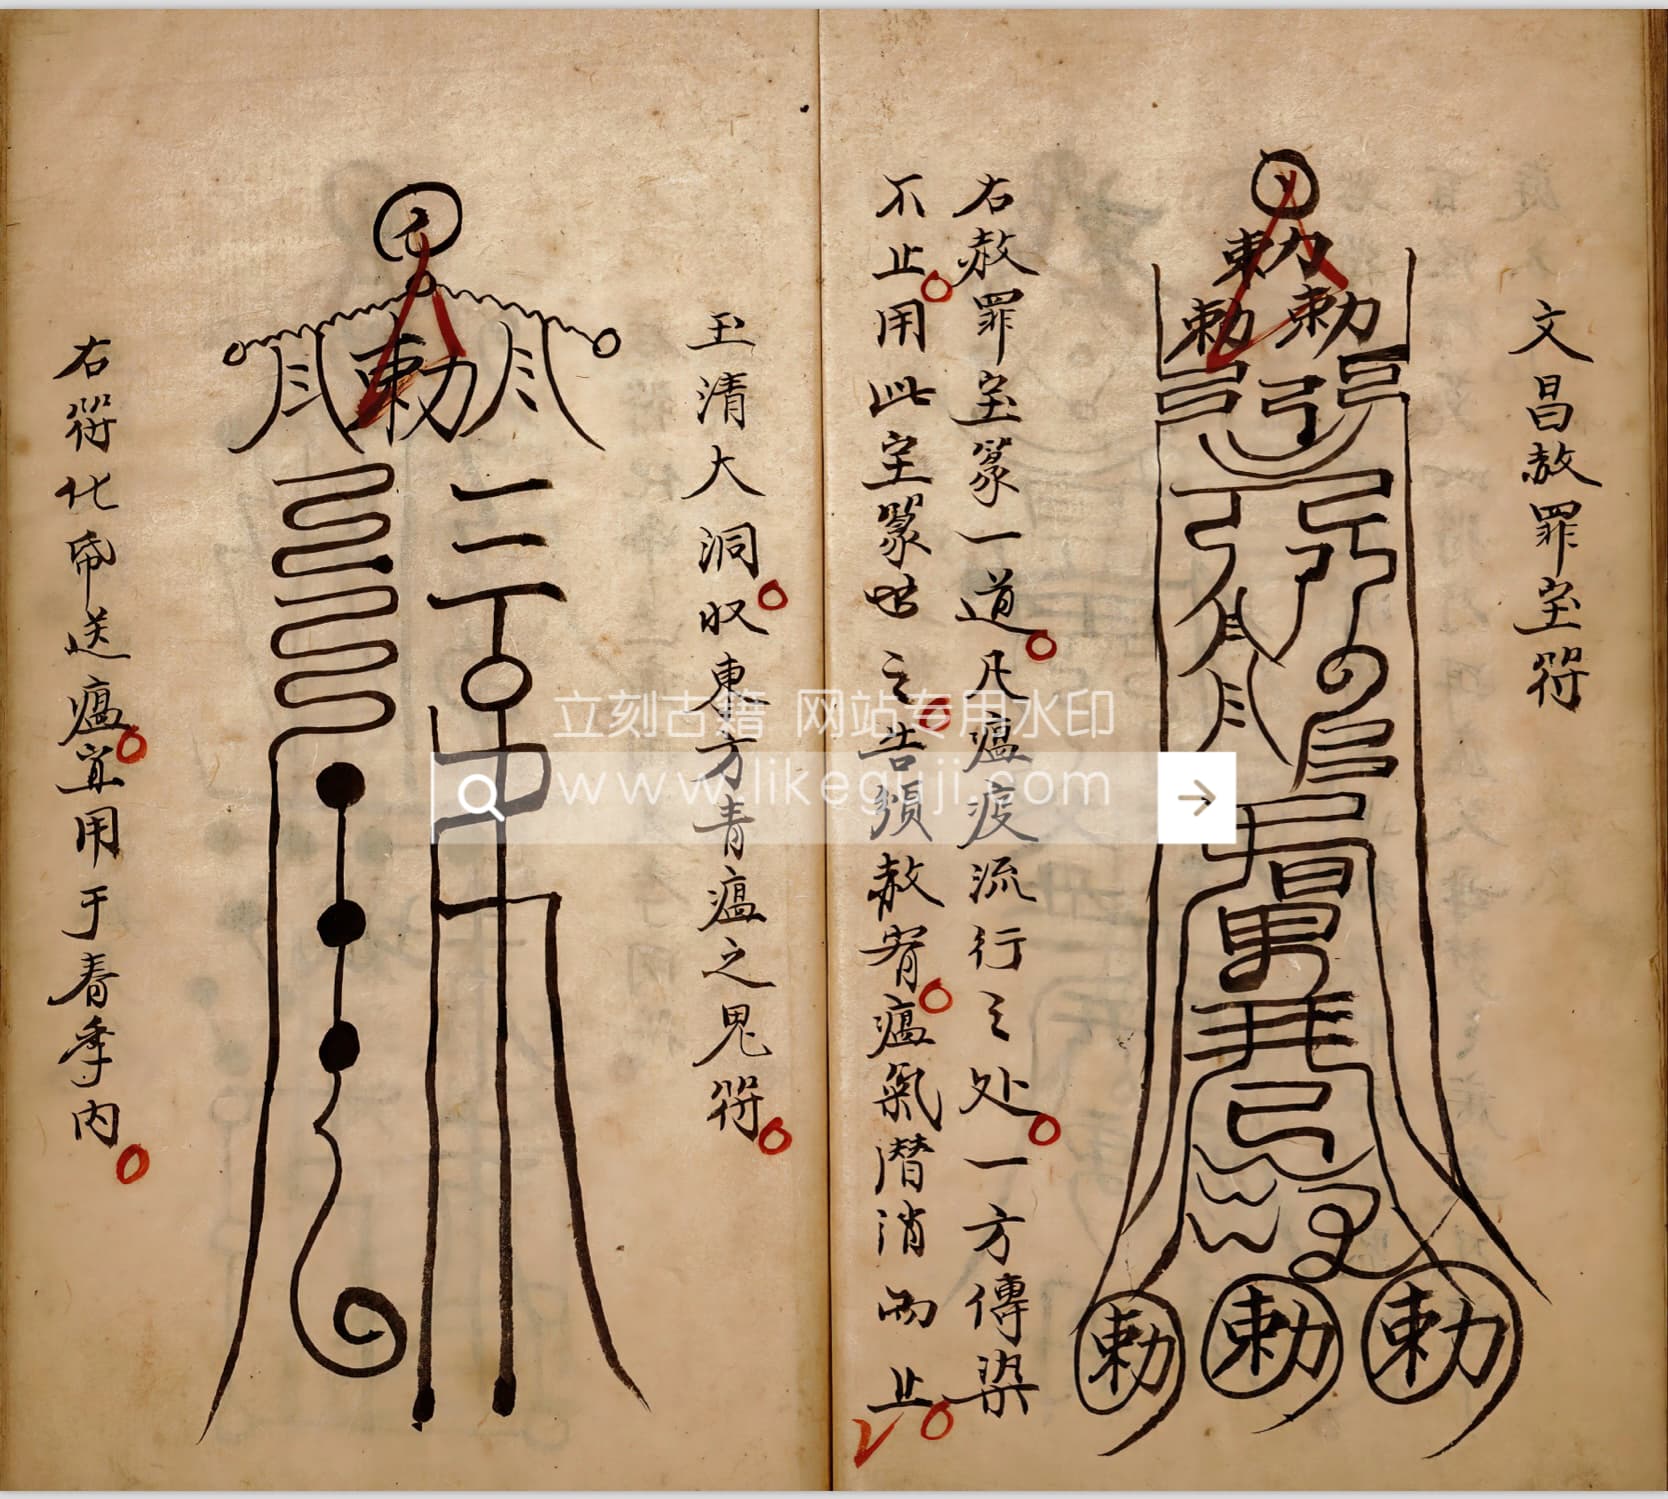 文昌赦罪宝符
勅
勅勅
勅勅勅
右赦罪宝篆一道凡瘟疫流行之处一方傳染
不止用此宝篆
之告须赦宥瘟氣潛消而止
玉清大洞收東方青瘟之鬼符
勅
右符化帋送瘟宜用于春季内
立刻古籍 网站专用水印
www.likeguji.com